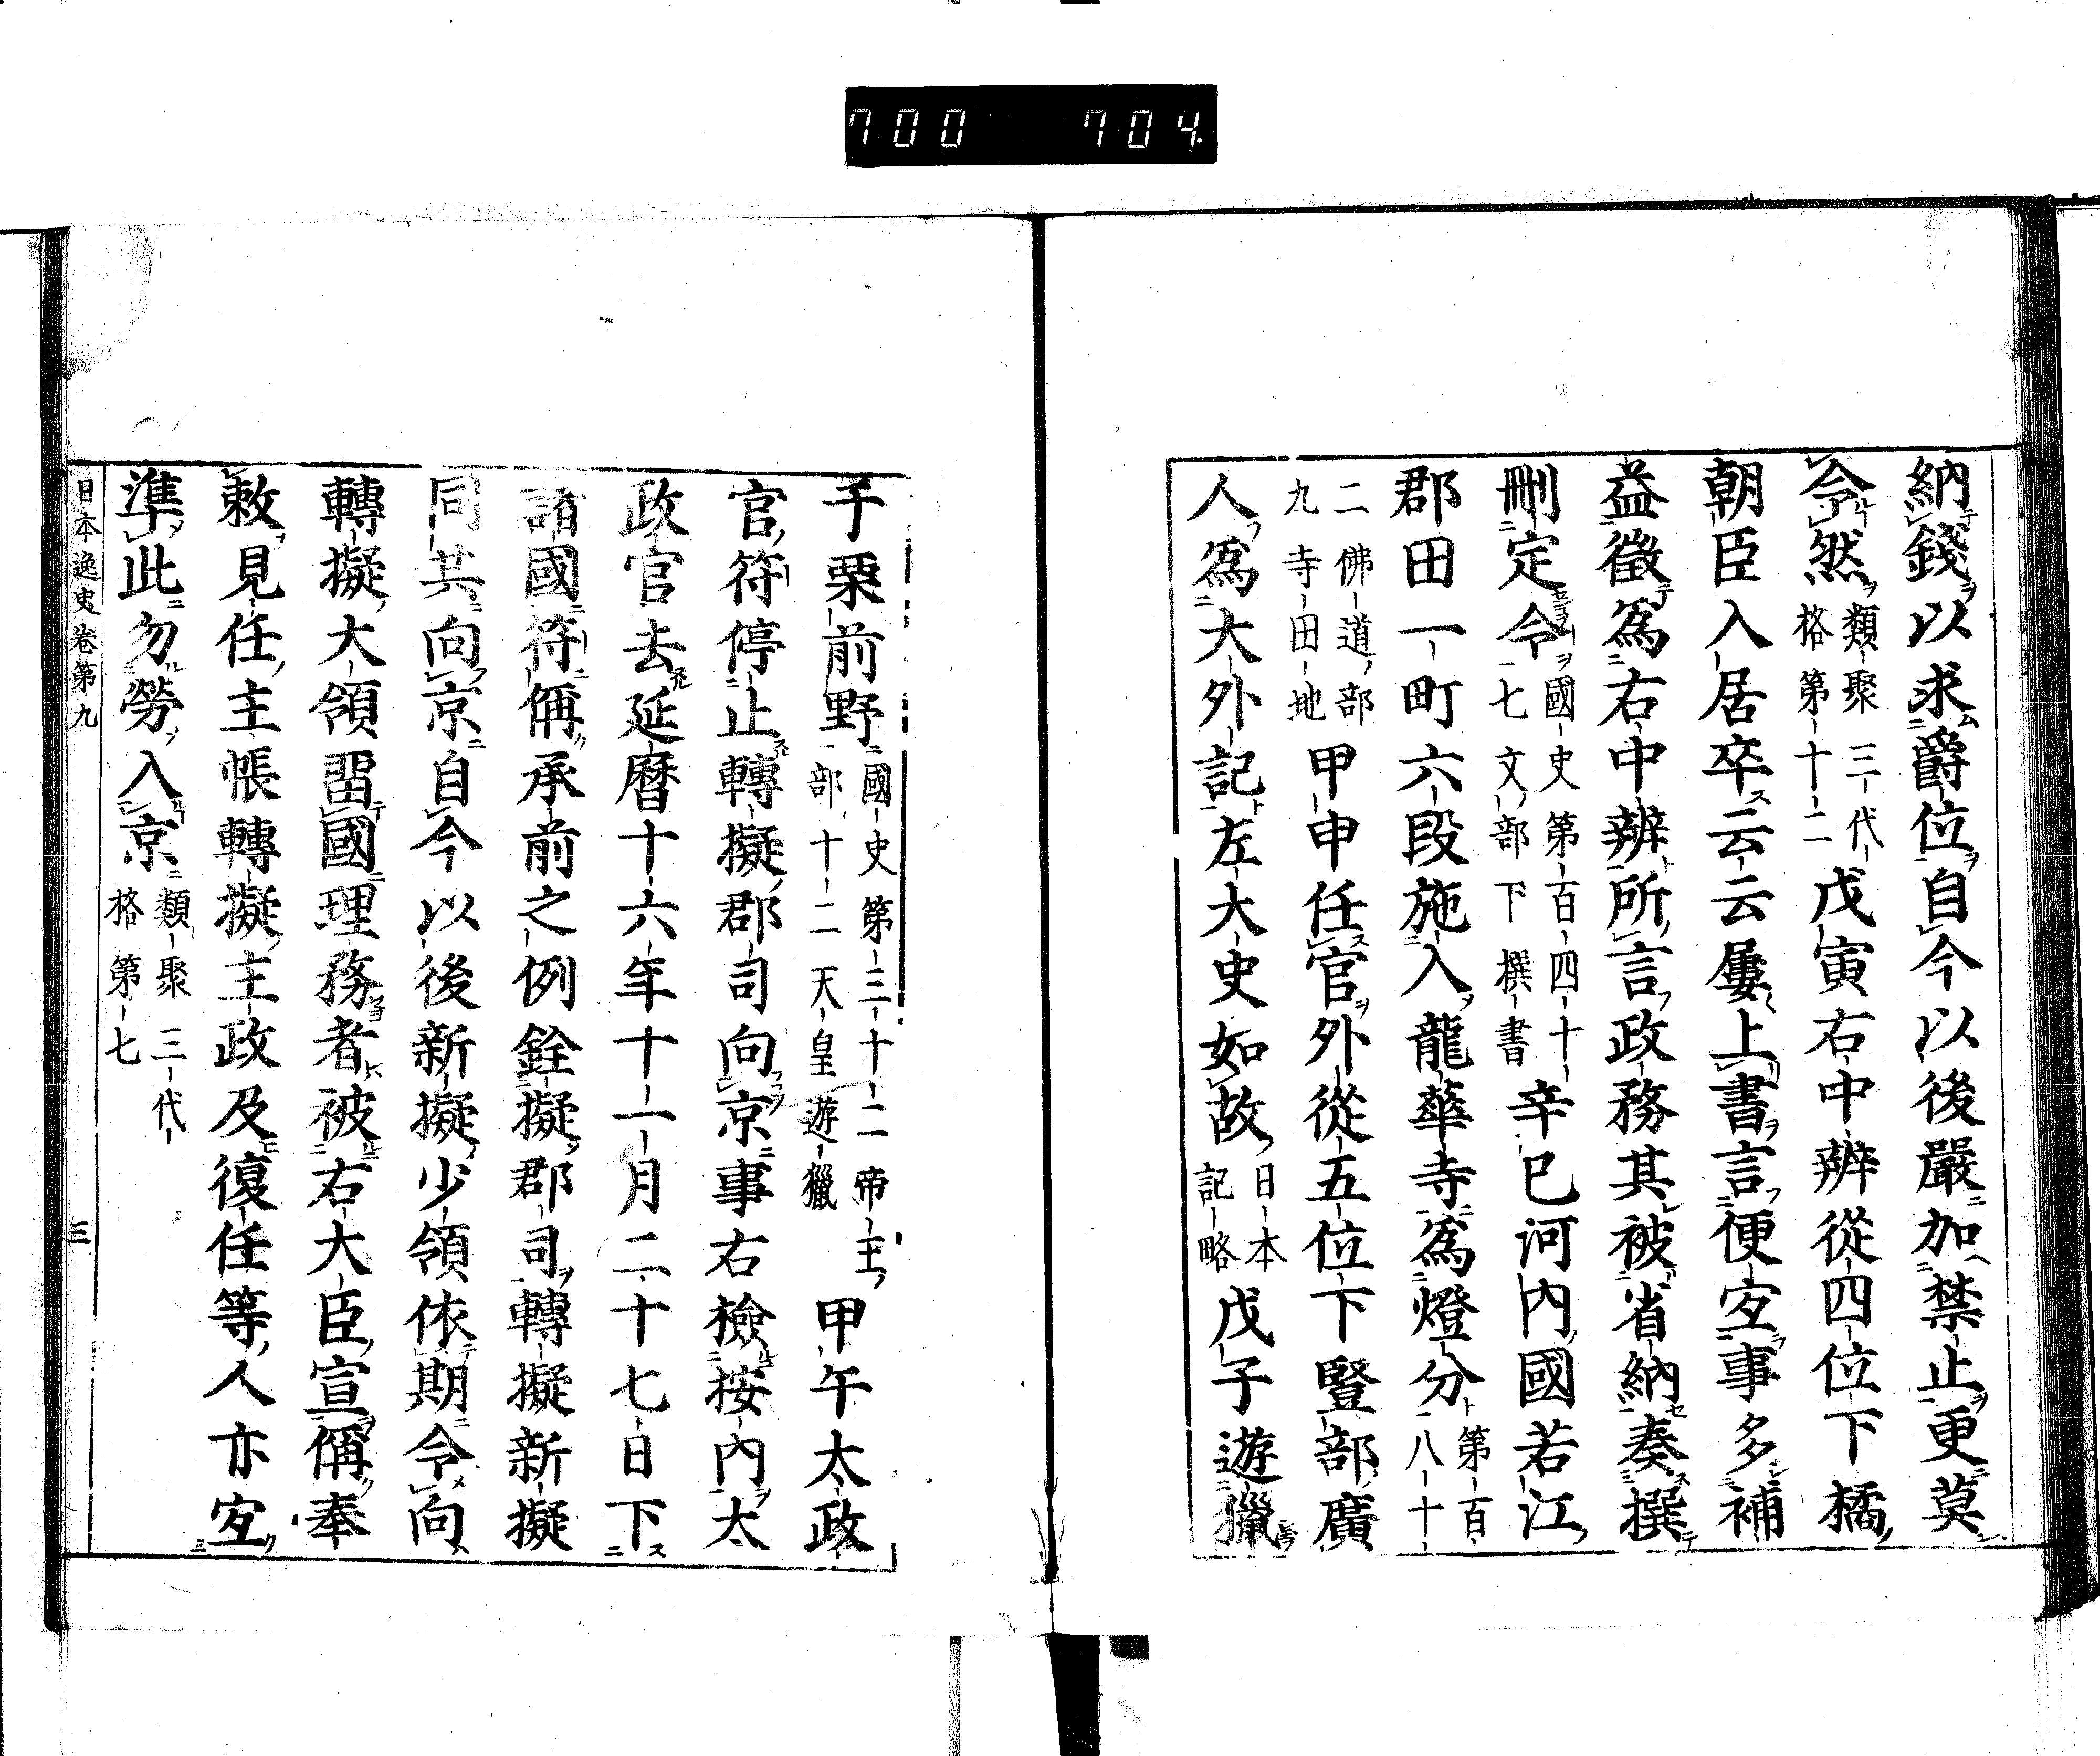 700 704
納錢以求爵位自今以後嚴加禁止更莫
令然類聚三代格第十二戊寅右中辨從四位下橘
朝臣入居卒云云屢上書言便宐事多補
益徵爲右中辨所言政務其被省納奏撰
刪定令國史第百四十七文部下撰書辛巳河內國若江
郡田一町六段施入龍華寺爲燈分第百八十
二佛道部九寺田地甲申任官外從五位下豎部廣
人爲大外記左大史如故日本記略戊子遊獵
于栗前野國史第三十二帝王部十二天皇遊獵甲午太政
官符停止轉擬郡司向京事右檢按內太
政官去延曆十六年十一月二十七日下
諸國符偁承前之例銓擬郡司轉擬新擬
同共向京自今以後新擬少領依期令向
轉擬大領畱國理務者被右大臣宣偁奉
敕見任主帳轉擬主政及復任等人亦宐
準此勿勞入京類聚三代格第七
日本逸史卷第九 三